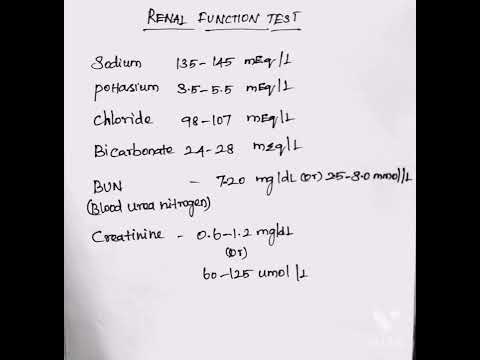 RENAL FUNCTION TEST
Sodium 135-145 mEq/L
potassium 3.5-5.5 mEq/L
Chloride 98-107 mEq/L
Bicarbonate 24-28 mEq/L
BUN - 7.20 mg/dL (or) 25-8.0 mmol/L
(Blood urea nitrogen)
Creatinine - 0.6-1.2 mg/dL
(or)
60-125 umol/L